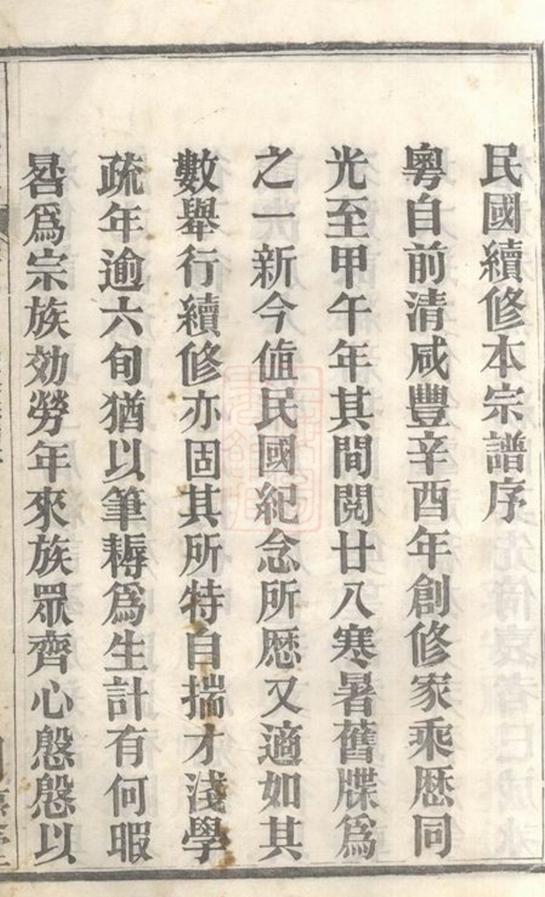 民國續修本宗譜序
粵自前清咸豐辛酉年創修家乘歷同
光至甲午年其間閱廿八寒暑舊牒爲
之一新今值民國紀念所歷又適如其
數舉行續修亦固其所特自揣才淺學
疏年逾六旬猶以筆耨爲生計有何暇
晷爲宗族効勞年來族眾齊心慇慇以